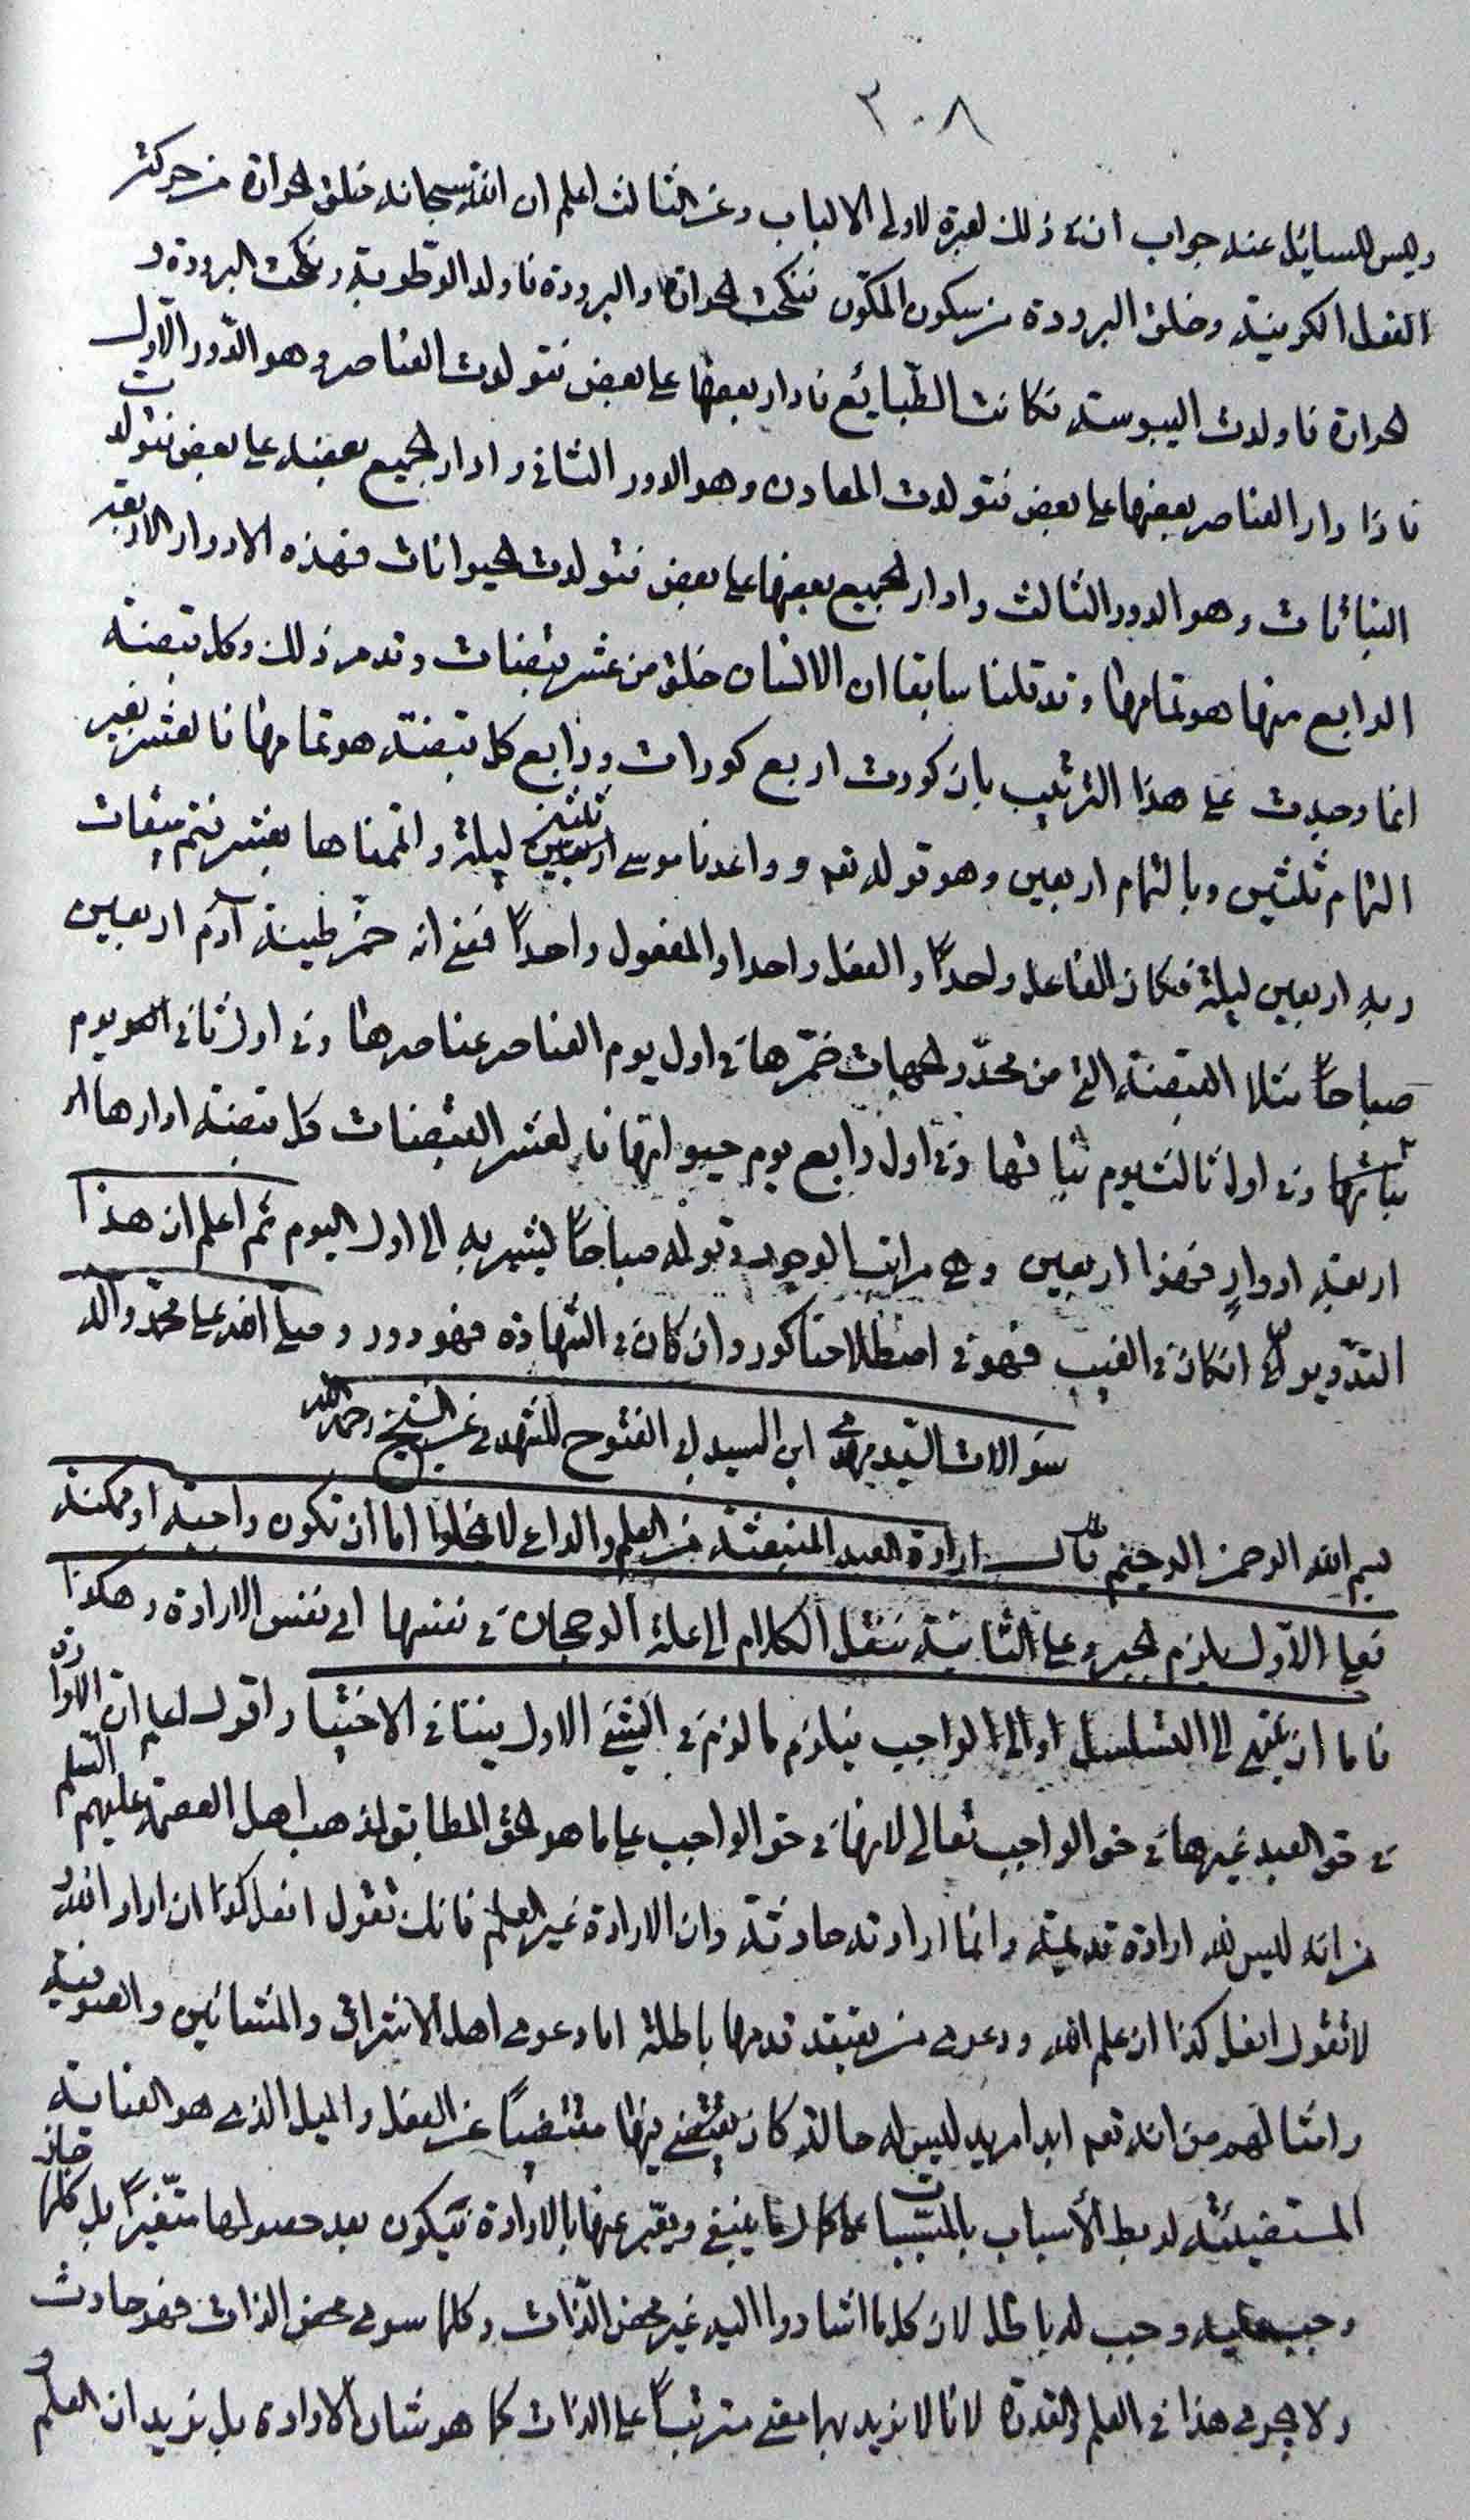 ٣٠٨
وليس للسايل عنده جواب ان في ذلك لعبرة لاولى الالباب وعن الثالث اعلم ان الله سبحانه خلق الحرارة من حركة
الفعل الكونية وخلق البرودة من سكون المكون فنكحت الحرارة والبرودة فاولد الرطوبة ونكحت البرودة و
الحرارة فاولدت اليبوسة فكانت الطبايع فادار بعضها على بعض فتولدت العناصر وهو الدور الاول
فاذا دار العناصر بعضها على بعض فتولدت المعادن وهو الدور الثانى وادار الجميع بعضه على بعض فتولدت
النباتات وهو الدور الثالث وادار الجميع بعضها على بعض فتولدت الحيوانات فهذه الادوار الاربعة
الرابع منها هو تمامها وقد قلنا سابقا ان الانسان خلق من عشر قبضات وقد مر ذلك وكل قبضة
انما وجدت على هذا الترتيب بان كورت اربع كورات ورابع كل قبضة هو تمامها فالعشر بغير
التمام ثلثين وبالتمام اربعين وهو قوله تعم وواعدنا موسى ثلثين ليلة واتممناها بعشر فتم ميقات
ربه اربعين ليلة فكان الفاعل واحدًا والفعل واحدا والمفعول واحدًا فمعنى انه خمّر طينة آدم اربعين
صباحًا مثلا القبضة التى من محدّد الجهات خمّرها فى اول يوم العناصر عناصرها وفى اول ثانى يوم
نباتها وفى اول ثالث يوم نباتها وفى اول رابع يوم حيوانها فالعشر القبضات كل قبضة ادارها الله
اربعة ادوارٍ فهذا اربعين وهى مراتب الوجود وقوله صباحًا ليشير به الى اول اليوم ثم اعلم ان هذا
التدوير ان كان فى الغيب فهو فى اصطلاحنا كور وان كان فى الشهادة فهو دور وصلى الله على محمّد وآله
سؤالات السّيد مهدى ابن السيد ابى الفتوح للشهد عن الشيخ رحمه الله
بسم الله الرحمن الرحيم قال ارادة العبد المنبعثة من العلم والداعى لا يخلوا اما ان تكون واجبة او ممكنة
فعلى الاول يلزم الجبر وعلى الثانية ننقل الكلام الى علة الرجحان فى نفسها اى نفس الارادة وهكذا
فاما ان ينتهى الى التسلسل او الى الواجب فيلزم ما لزم فى الشق الاول ينافى الاختيار اقول اعلم ان الارادة
فى حق العبد غيرها فى حق الواجب تعالى لانها فى حق الواجب على ما هو الحق المطابق لمذهب اهل العصمة عليهم السلم
من انه ليس لله ارادة قديمة وانما ارادته حادثة وان الارادة غير العلم فانك تقول افعل كذا ان اراد الله و
لا تقول افعل كذا ان علم الله ودعوى من يعتقد قدمها باطلة اما دعوى اهل الاشراق والمشائين والصوفية
وامثالهم من انه تعم ابدا مريد ليس له حالة كان يقتضى فيها منتفيًا عن الفعل والميل الذى هو العناية
المستفيضة لربط الأسباب بالمسببات على كل ما ينبغى ويعبر عنها بالارادة فيكون بعد حصولها متغيرًا بل كلما جاز
وجب عليه وجب له باطل لان كل ما اشاروا اليه غير محض الذات وكلما سوى محض الذات فهو حادث
ولا يجرى هذا فى العلم والقدرة لانا لا نريد بهما معنى مترتبًا على الذات كما هو شان الارادة بل نريد ان العلم و